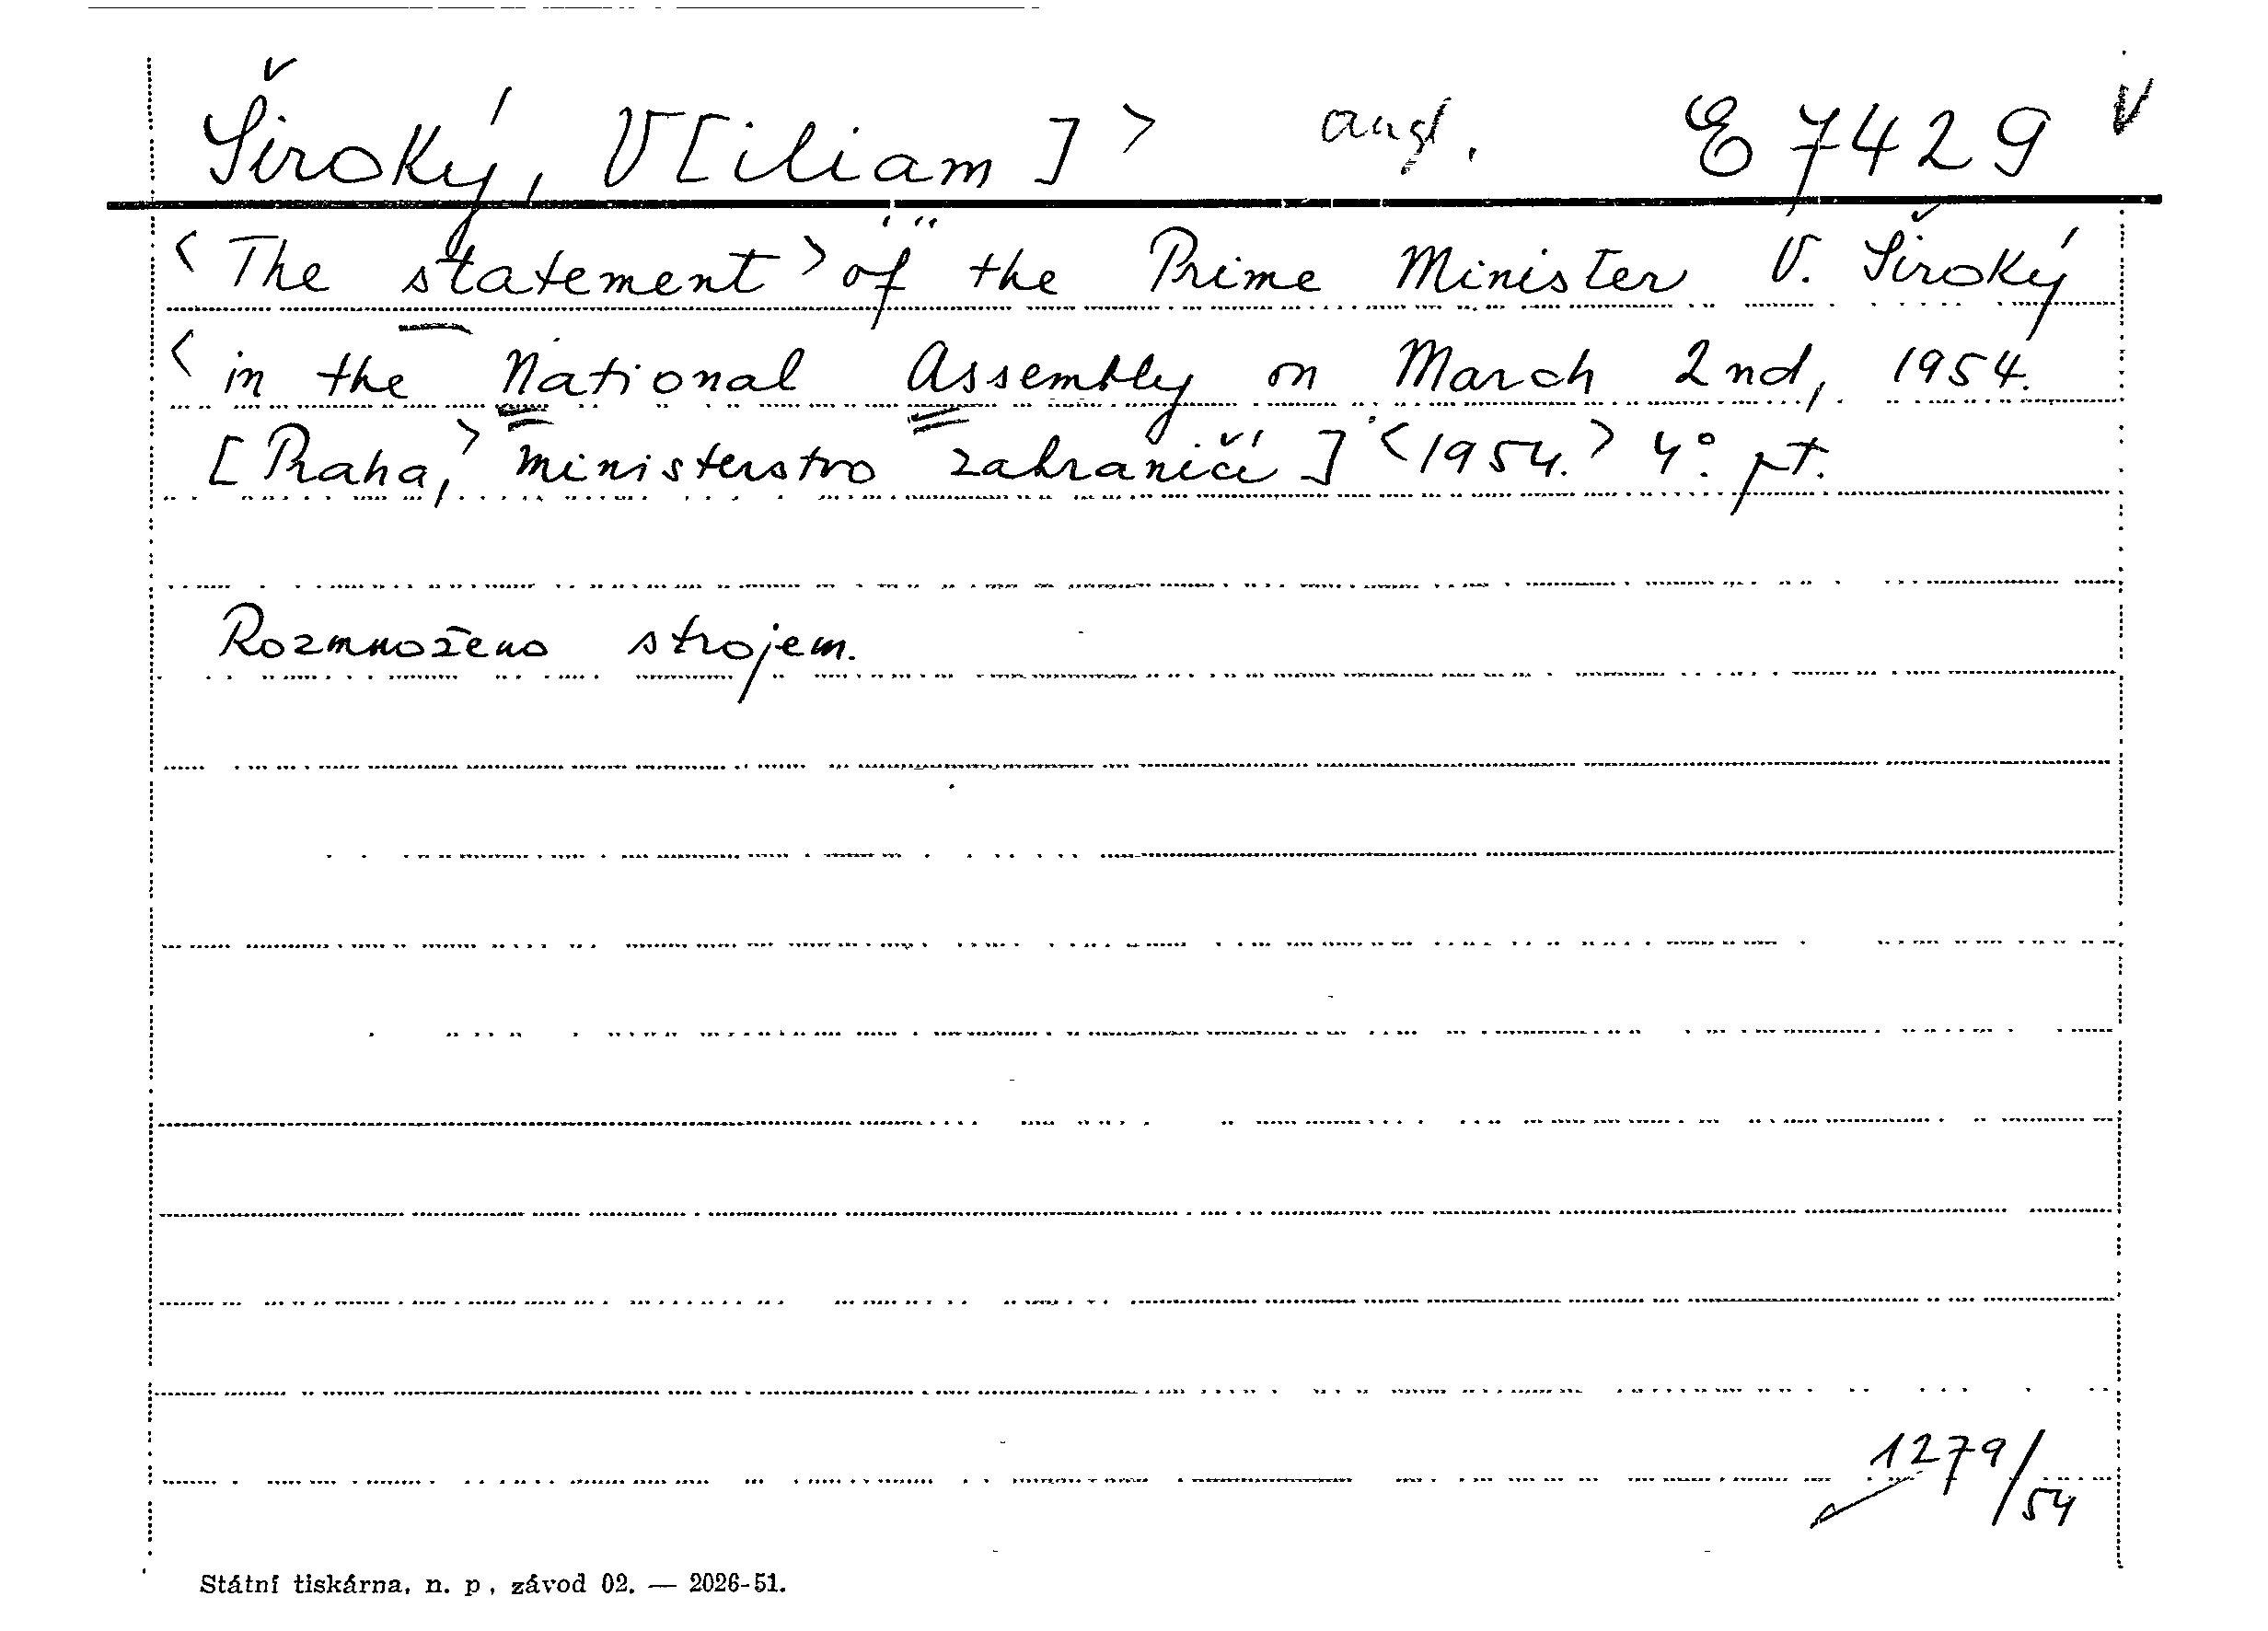 Široký, V[iliam] > angl. E 7429 V
< The statement > of the Prime Minister V. Široký
< in the National Assembly on March 2nd, 1954.
[Praha, > ministerstvo zahraničí] < 1954. > 4°. pt.
Rozmnoženo strojem.
1279/54
Státní tiskárna, n. p., závod 02. — 2026-51.